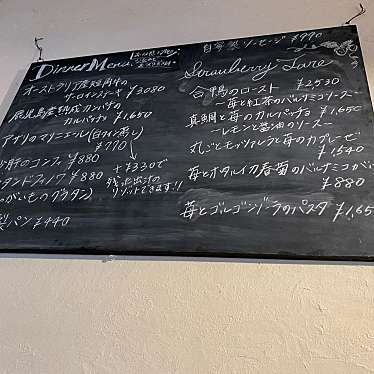 Dinner Menu
オーストラリア産短角牛の
サーロインステーキ ¥3080
鹿児島産熟成カンパチの
カルパッチョ ¥1,650
アサリのマリニエール(白ワイン蒸し)
¥770
肝のコンフィ ¥880
タンドフィノワ ¥880
がいものグラタン)
+¥330で
残った出汁の
リゾットできます!!
製パン ¥440
自家製ソーセージ ¥990
Strawberry Fare
合鴨のロースト ¥2,530
〜苺と紅茶のバルサミコソース〜
真鯛と苺のカルパッチョ ¥1,650
〜レモンと醤油のソース〜
丸ごとモッツァレラと苺のカプレーゼ
¥1,540
苺とホタルイカ春菊のバルサミコが
¥880
苺とゴルゴンゾーラのパスタ ¥1,65